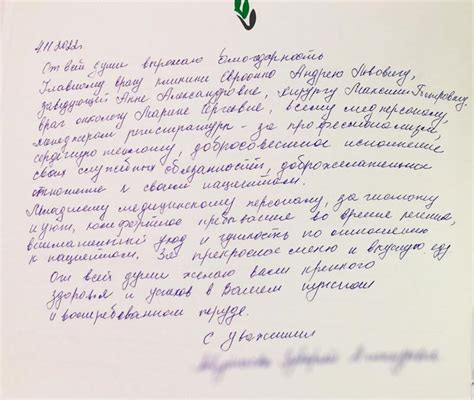 4.11.2022г.
От всей души выражаю благодарность
Главному врачу клиники Евроонко Андрею Львовичу,
заведующей Анне Александровне, хирургу Максиму Петровичу
врач онкологу Марине Сергеевне, всему медперсоналу,
менеджерам регистратуры - за профессионализм,
сердечную теплоту, добросовестное исполнение
своих служебных обязанностей, доброжелательное
отношение к своим пациентам.
Младшему медицинскому персоналу, за чистоту
и уют, комфортное пребывание во время лечения,
внимательный уход и чуткость по отношению
к пациентам. За прекрасное меню и вкусную еду
От всей души желаю вам крепкого
здоровья и успехов в Вашем нужном
и востребованном труде.
С уважением